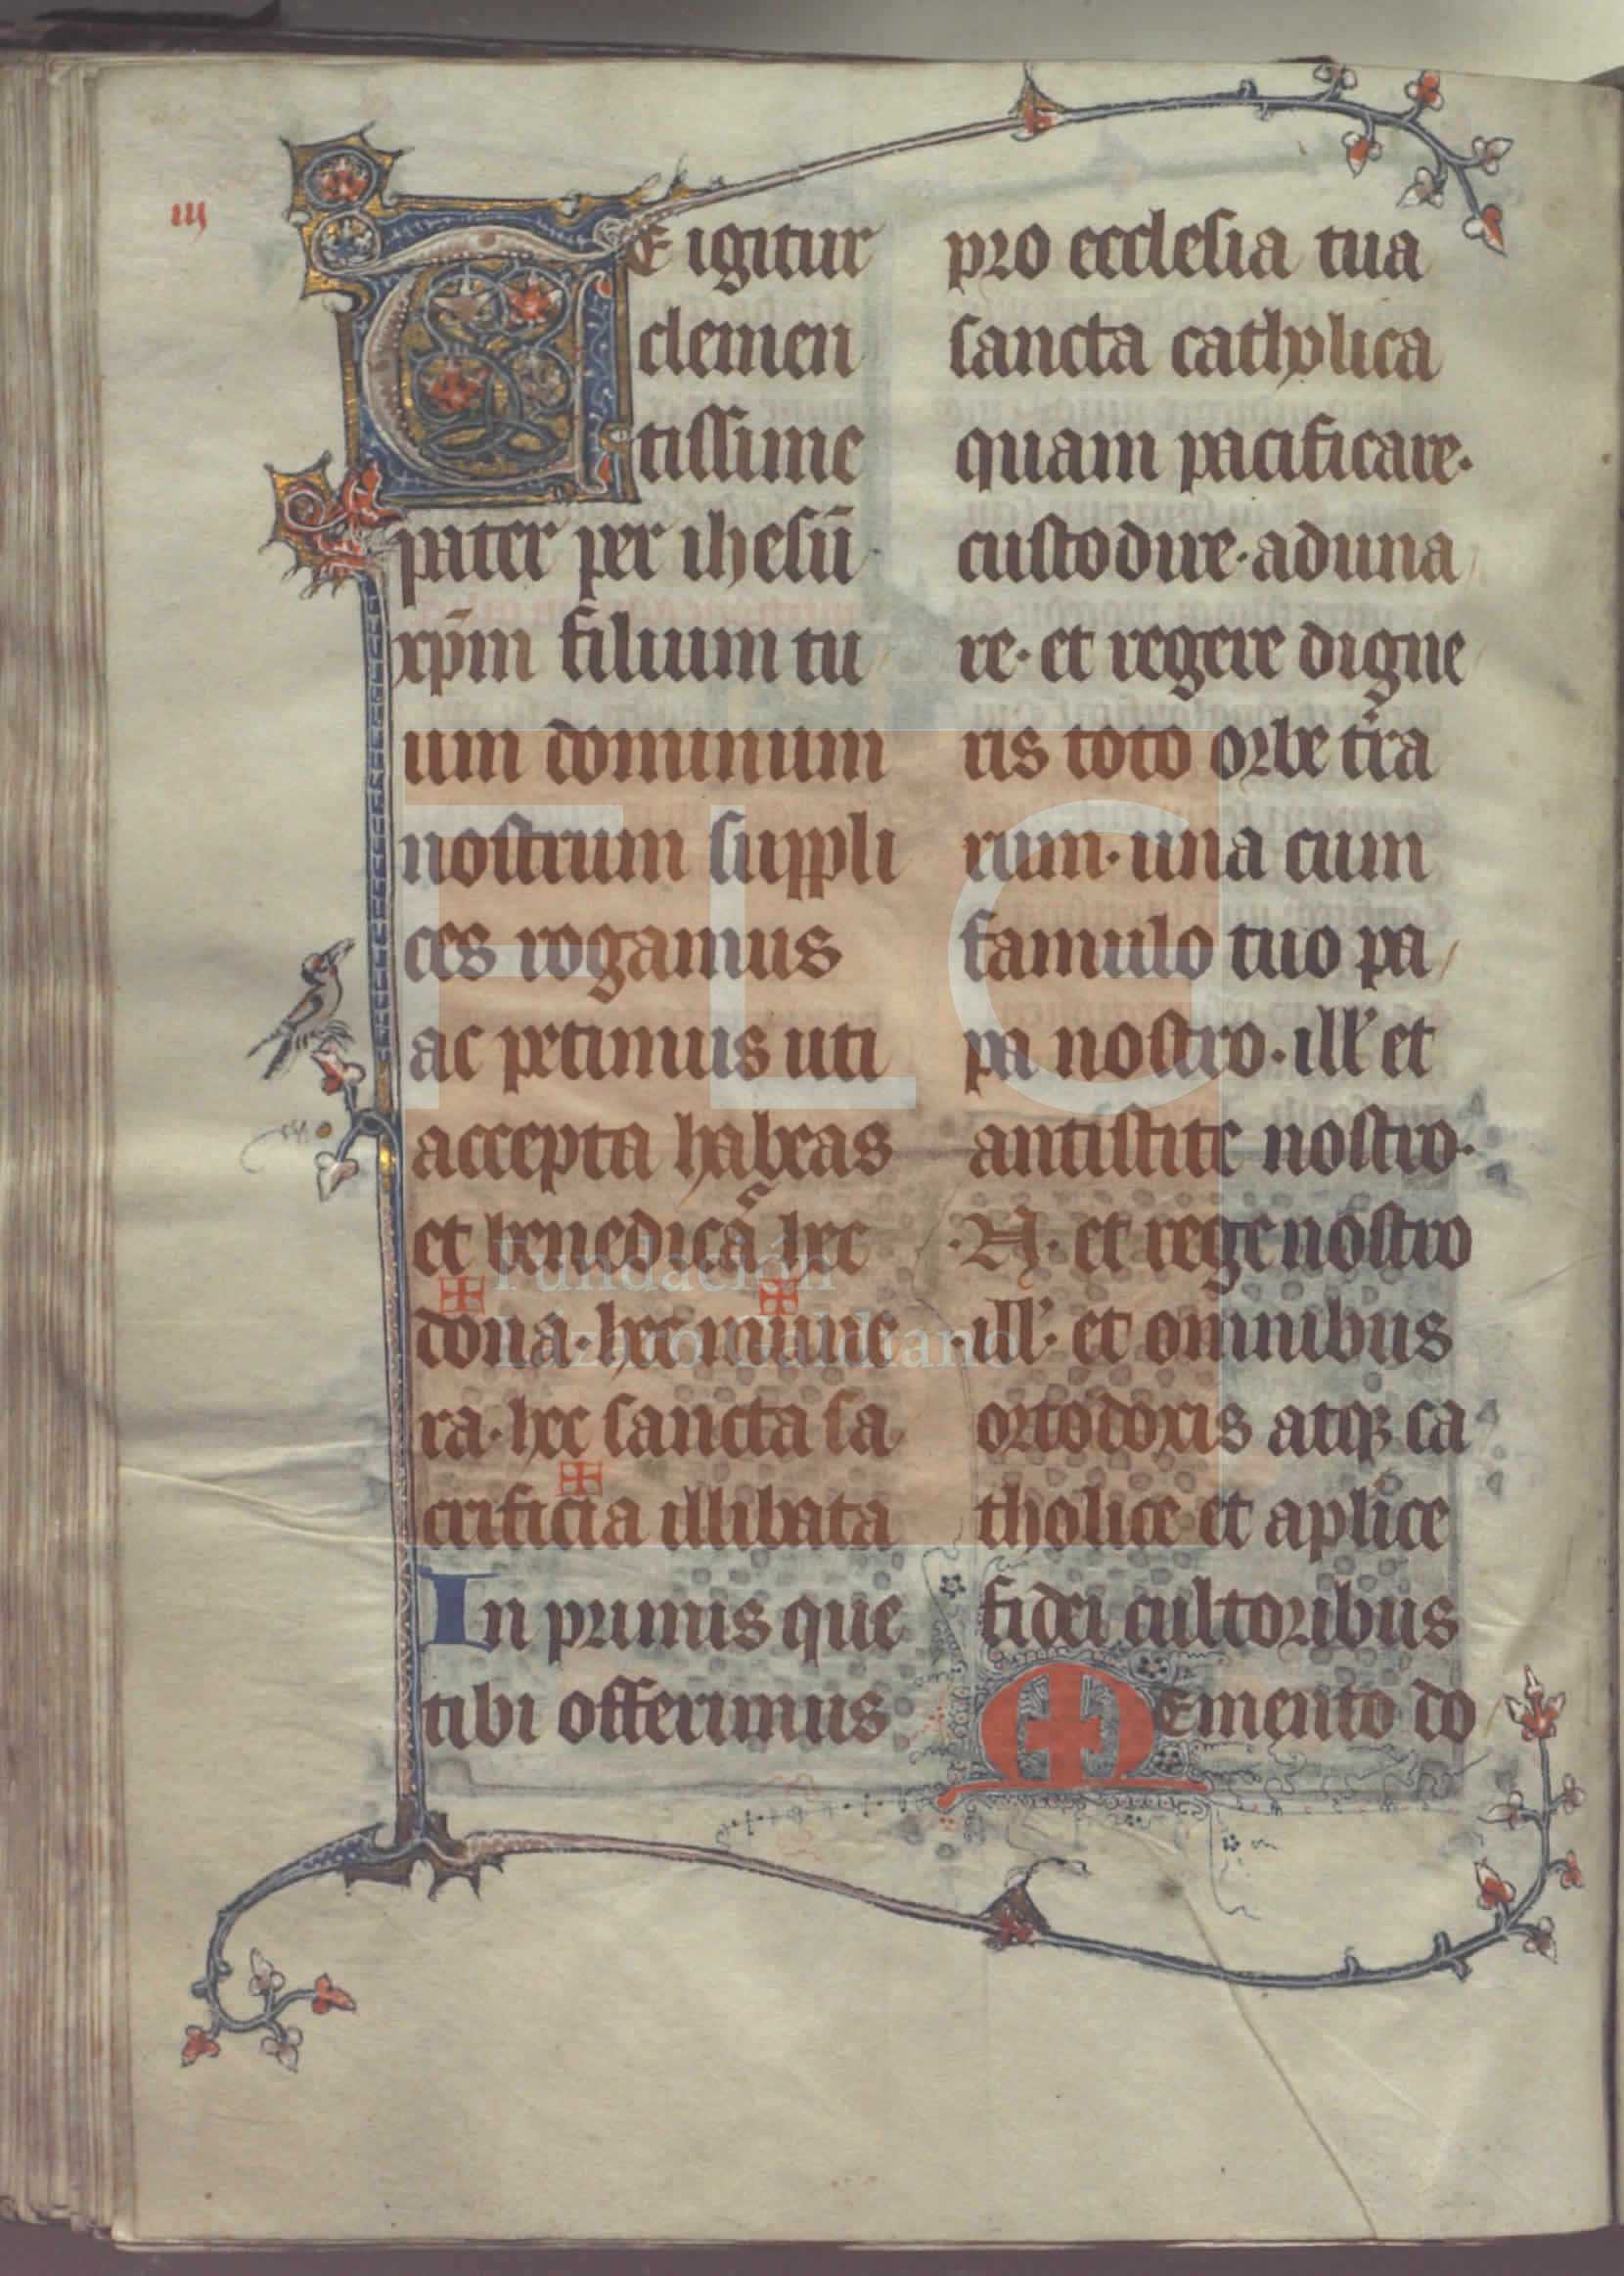 iij
TE igitur
clemen
tissime
pater per ihesū
xp̄m filium tu
um dominum
nostrum suppli
ces rogamus
ac petimus uti
accepta habeas
et benedicas hec
dona · hec mune
ra · hec sancta sa
crificia illibata
In primis que
tibi offerimus
pro ecclesia tua
sancta catholica
quam pacificare ·
custodire · aduna
re · et regere digne
ris toto orbe t̄ra
rum · una cum
famulo tuo pa
pa nostro · ill̓ et
antistite nostro ·
· N · et rege nostro
· ill̓ · et omnibus
ortodoxis atqꝫ ca
tholice et aplice
fidei cultoribus
MEmento do
FLG
Fundación
Lázaro Galdiano